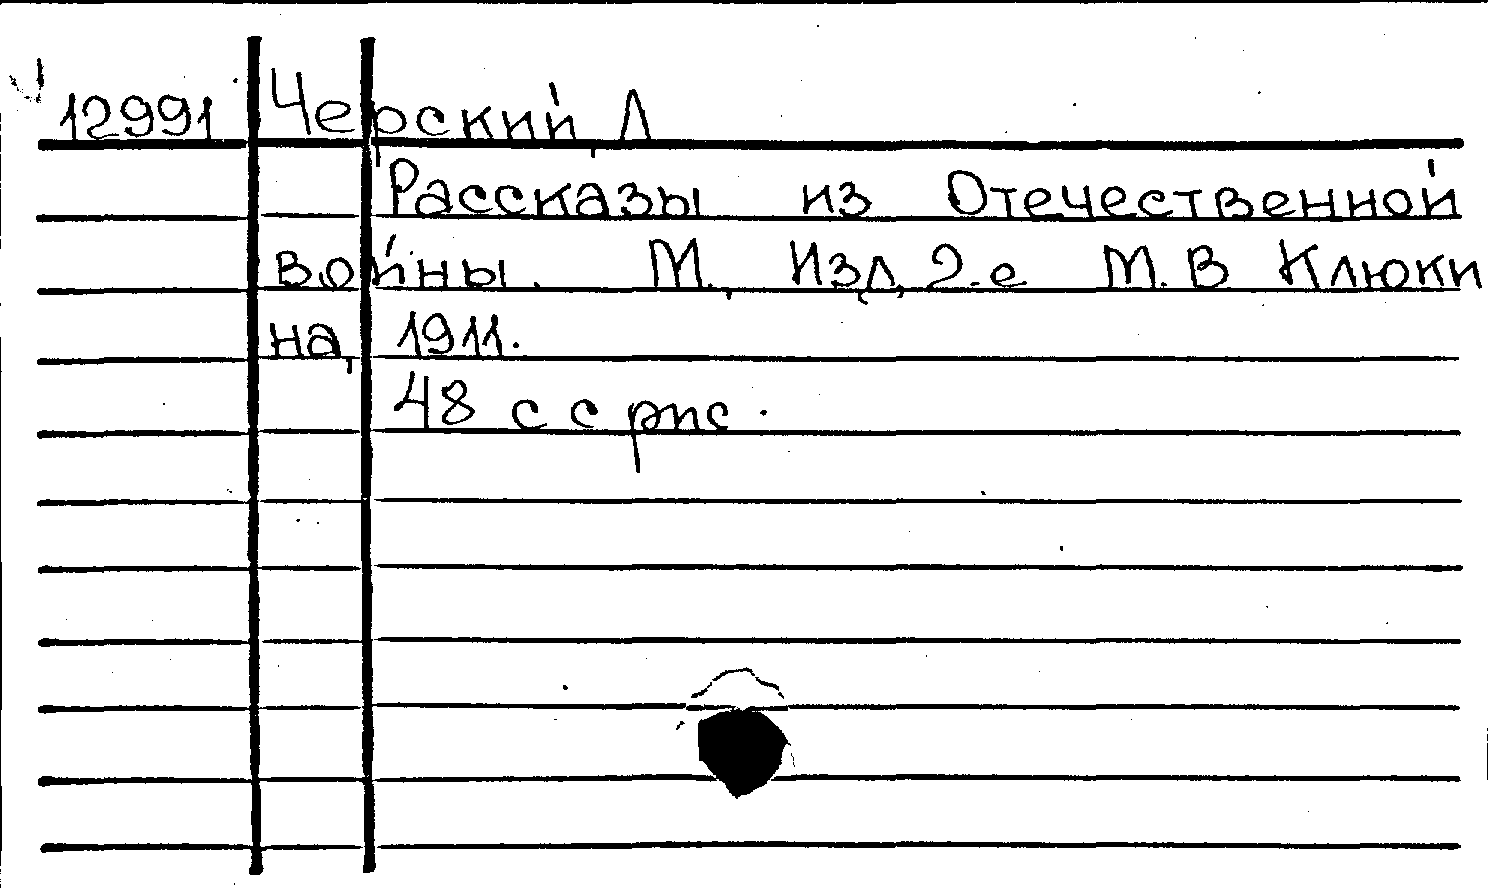 12991 Черский, Л
Рассказы из Отечественной
войны. М., Изд. 2-е М. В Клюки
на, 1911.
48 с с рис.